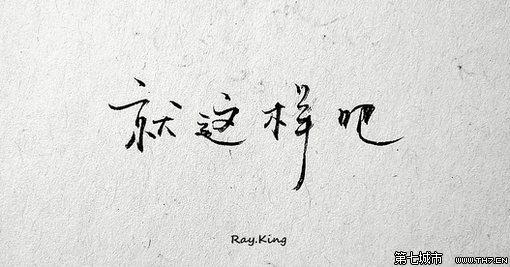 就这样吧
Ray.King
第七城市 www.TH7.CN